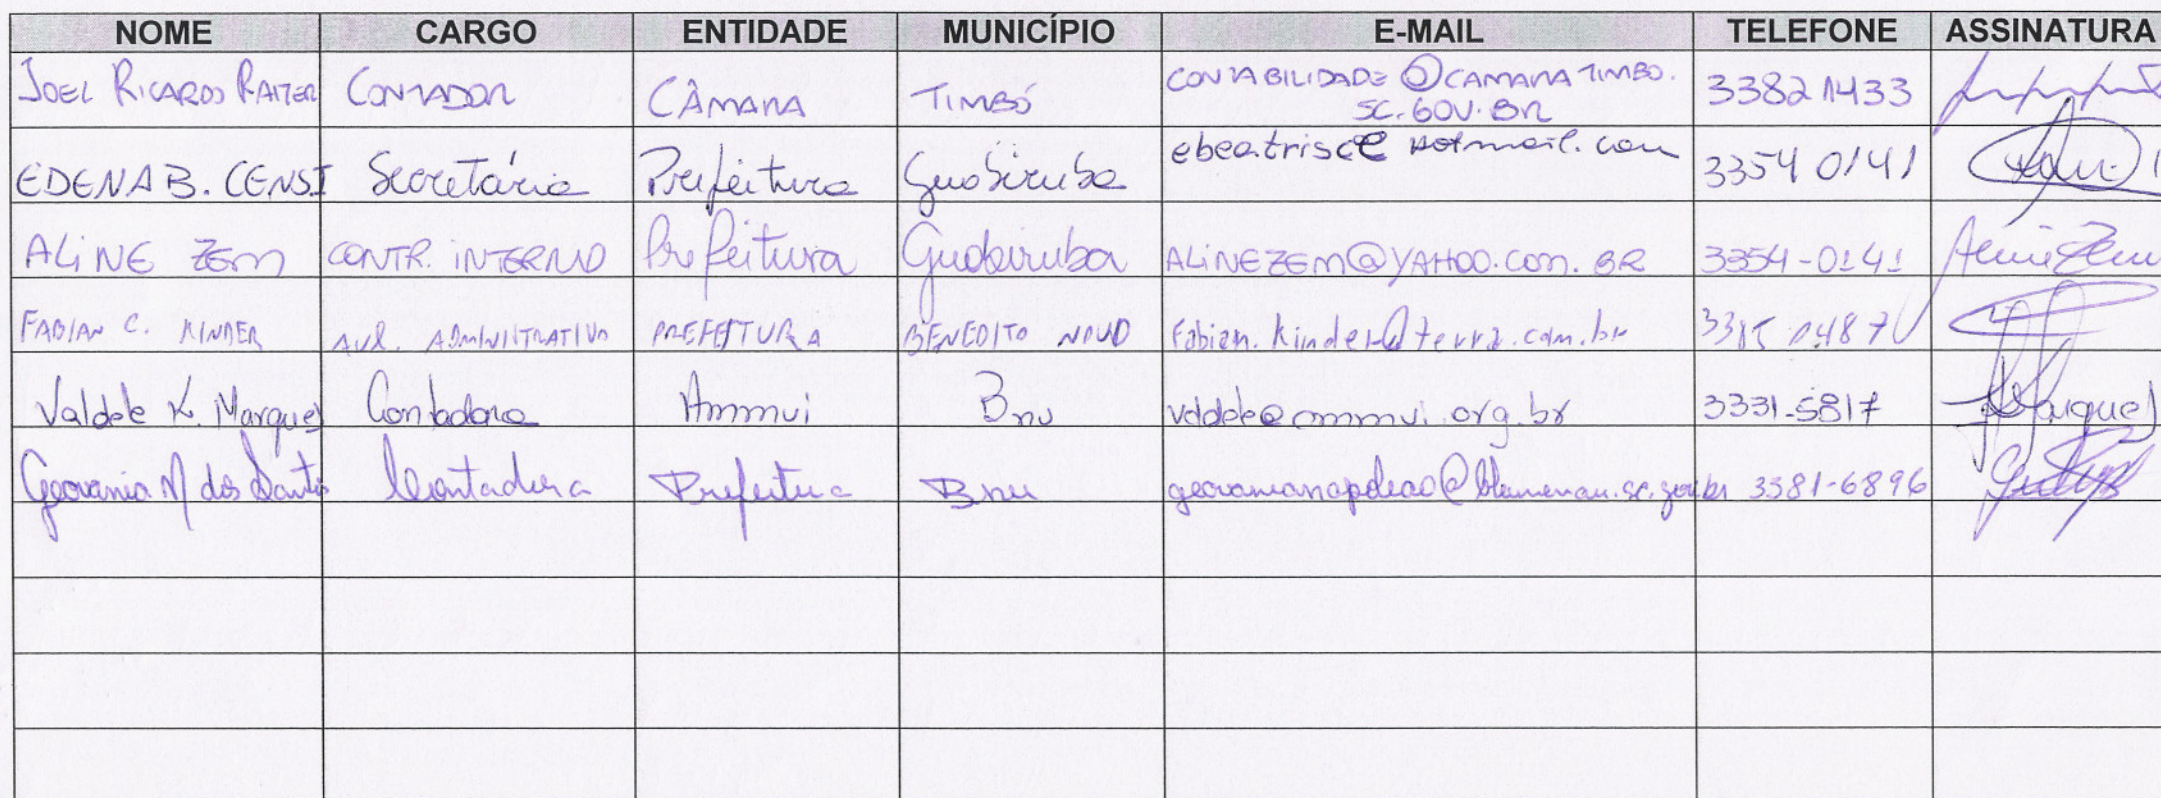 NOME CARGO ENTIDADE MUNICÍPIO E-MAIL TELEFONE ASSINATURA
JOEL RICARDO RAITER CONTADOR CÂMARA TIMBÓ CONTABILIDADE@CAMARATIMBO. 33821433
SC.GOV.BR
EDENA B. CENSI Secretária Prefeitura Guabiruba ebeatrisc@hotmail.com 33540141
ALINE ZEM CONTR. INTERNO Prefeitura Guabiruba ALINEZEM@YAHOO.COM.BR 3354-0141
FABIAN C. KINDER AUX. ADMINISTRATIVO PREFEITURA BENEDITO NOVO fabian.kinder@terra.com.br 33850487
Valdete K. Marques Contadora Ammvi Bnu valdete@ammvi.org.br 3331-5817
Geovania N dos Santos Contadora Prefeitura Bnu geovanianapoleao@blumenau.sc.gov.br 3381-6896